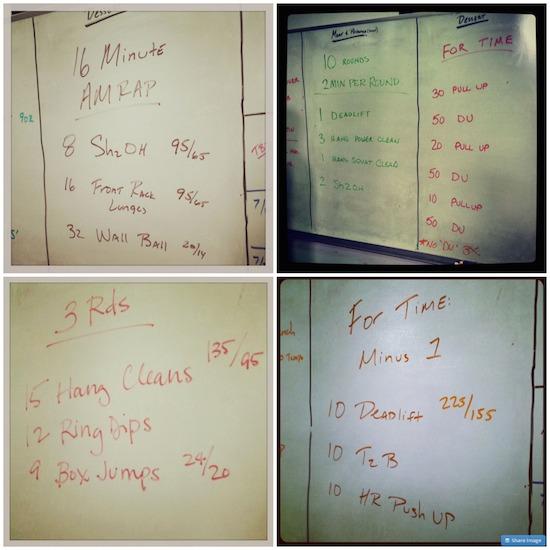 Dessert
16 Minute
AMRAP
8 Sh2OH 95/65
16 Front Rack Lunges 95/65
32 Wall Ball 20/14
Dessert
10 ROUNDS
2 MIN PER ROUND
1 DEADLIFT
3 HANG POWER CLEAN
1 HANG SQUAT CLEAN
2 Sh2OH
FOR TIME
30 PULL UP
50 DU
20 PULL UP
50 DU
10 PULLUP
50 DU
*NO 'DU' 3X
3 Rds
15 Hang Cleans 135/95
12 Ring Dips
9 Box Jumps 24/20
For Time:
Minus 1
10 Deadlift 225/155
10 T2B
10 HR Push Up
Share Image